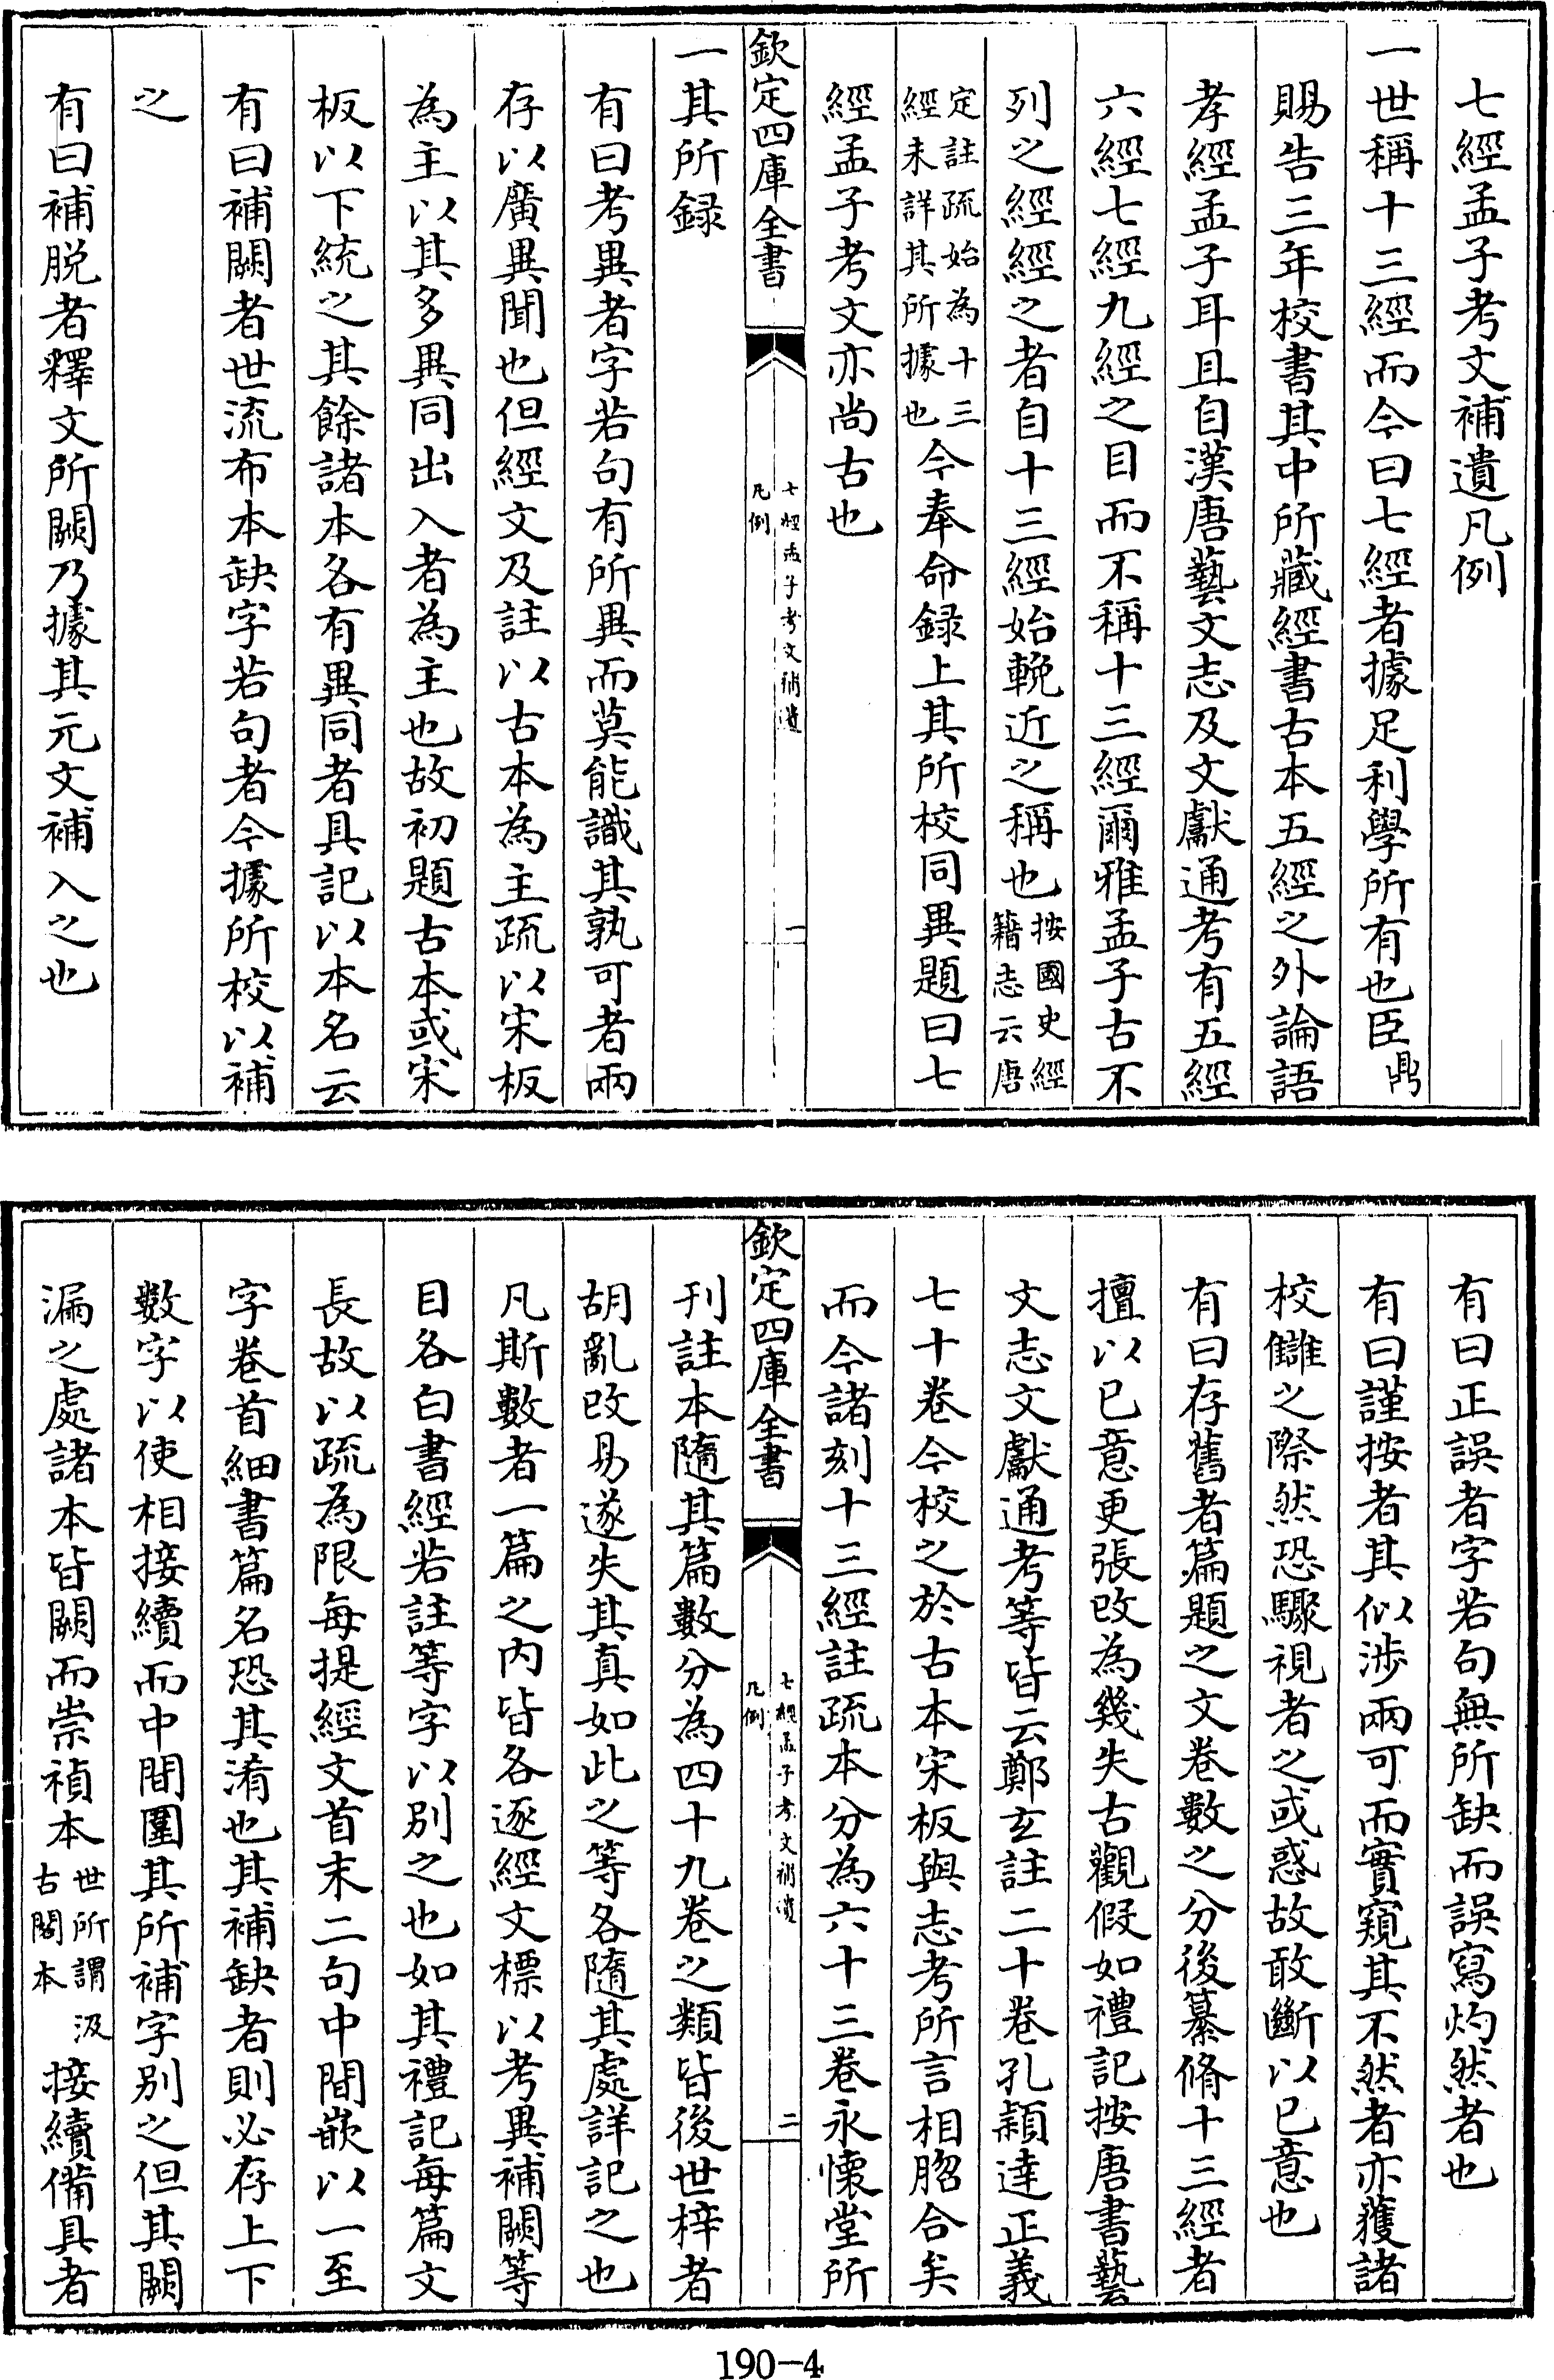 七經孟子考文補遺凡例
一世稱十三經而今曰七經者據足利學所有也臣鼎
賜告三年校書其中所藏經書古本五經之外論語
孝經孟子耳且自漢唐藝文志及文獻通考有五經
六經七經九經之目而不稱十三經爾雅孟子古不
列之經經之者自十三經始輓近之稱也按國史經籍志云唐
定註疏始為十三經未詳其所據也今奉命録上其所校同異題曰七
經孟子考文亦尚古也
欽定四庫全書
七經孟子考文補遺
凡例
一
一其所録
有曰考異者字若句有所異而莫能識其孰可者兩
存以廣異聞也但經文及註以古本為主疏以宋板
為主以其多異同出入者為主也故初題古本或宋
板以下統之其餘諸本各有異同者具記以本名云
有曰補闕者世流布本缺字若句者今據所校以補
之
有曰補脱者釋文所闕乃據其元文補入之也
有曰正誤者字若句無所缺而誤寫灼然者也
有曰謹按者其似涉兩可而實窺其不然者亦獲諸
校讎之際然恐驟視者之或惑故敢斷以已意也
有曰存舊者篇題之文卷數之分後纂脩十三經者
擅以已意更張改為幾失古觀假如禮記按唐書藝
文志文獻通考等皆云鄭玄註二十卷孔穎達正義
七十卷今校之於古本宋板與志考所言相脗合矣
而今諸刻十三經註疏本分為六十三卷永懷堂所
欽定四庫全書
七經孟子考文補遺
凡例
二
刊註本隨其篇數分為四十九卷之類皆後世梓者
胡亂改易遂失其真如此之等各隨其處詳記之也
凡斯數者一篇之内皆各逐經文標以考異補闕等
目各白書經若註等字以别之也如其禮記每篇文
長故以疏為限每提經文首末二句中間嵌以一至
字卷首細書篇名恐其淆也其補缺者則必存上下
數字以使相接續而中間圍其所補字别之但其闕
漏之處諸本皆闕而崇禎本世所謂汲古閣本接續備具者
190-4